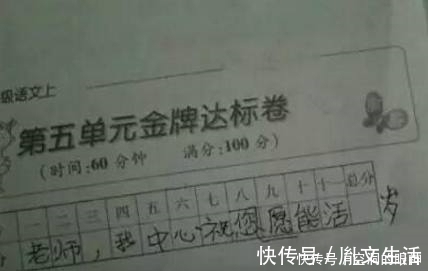 级语文上
第五单元金牌达标卷
(时间:60分钟 满分:100分)
一 二 三 四 五 六 七 八 九 十 十一 总分
老师,我中心祝您愿能活 岁
快传号/胤文生活